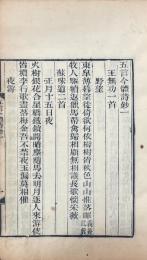 五言今體詩鈔一
王無功一首
野望
東皋薄暮望徙倚欲何依樹樹皆秋色山山惟落暉
牧人驅犢返獵馬帶禽歸相顧無相識長歌懷采薇
蘇味道二首
正月十五日夜
火樹銀花合星橋鐵鎖開暗塵隨馬去明月逐人來游妓
皆穠李行歌盡落梅金吾不禁夜玉漏莫相催